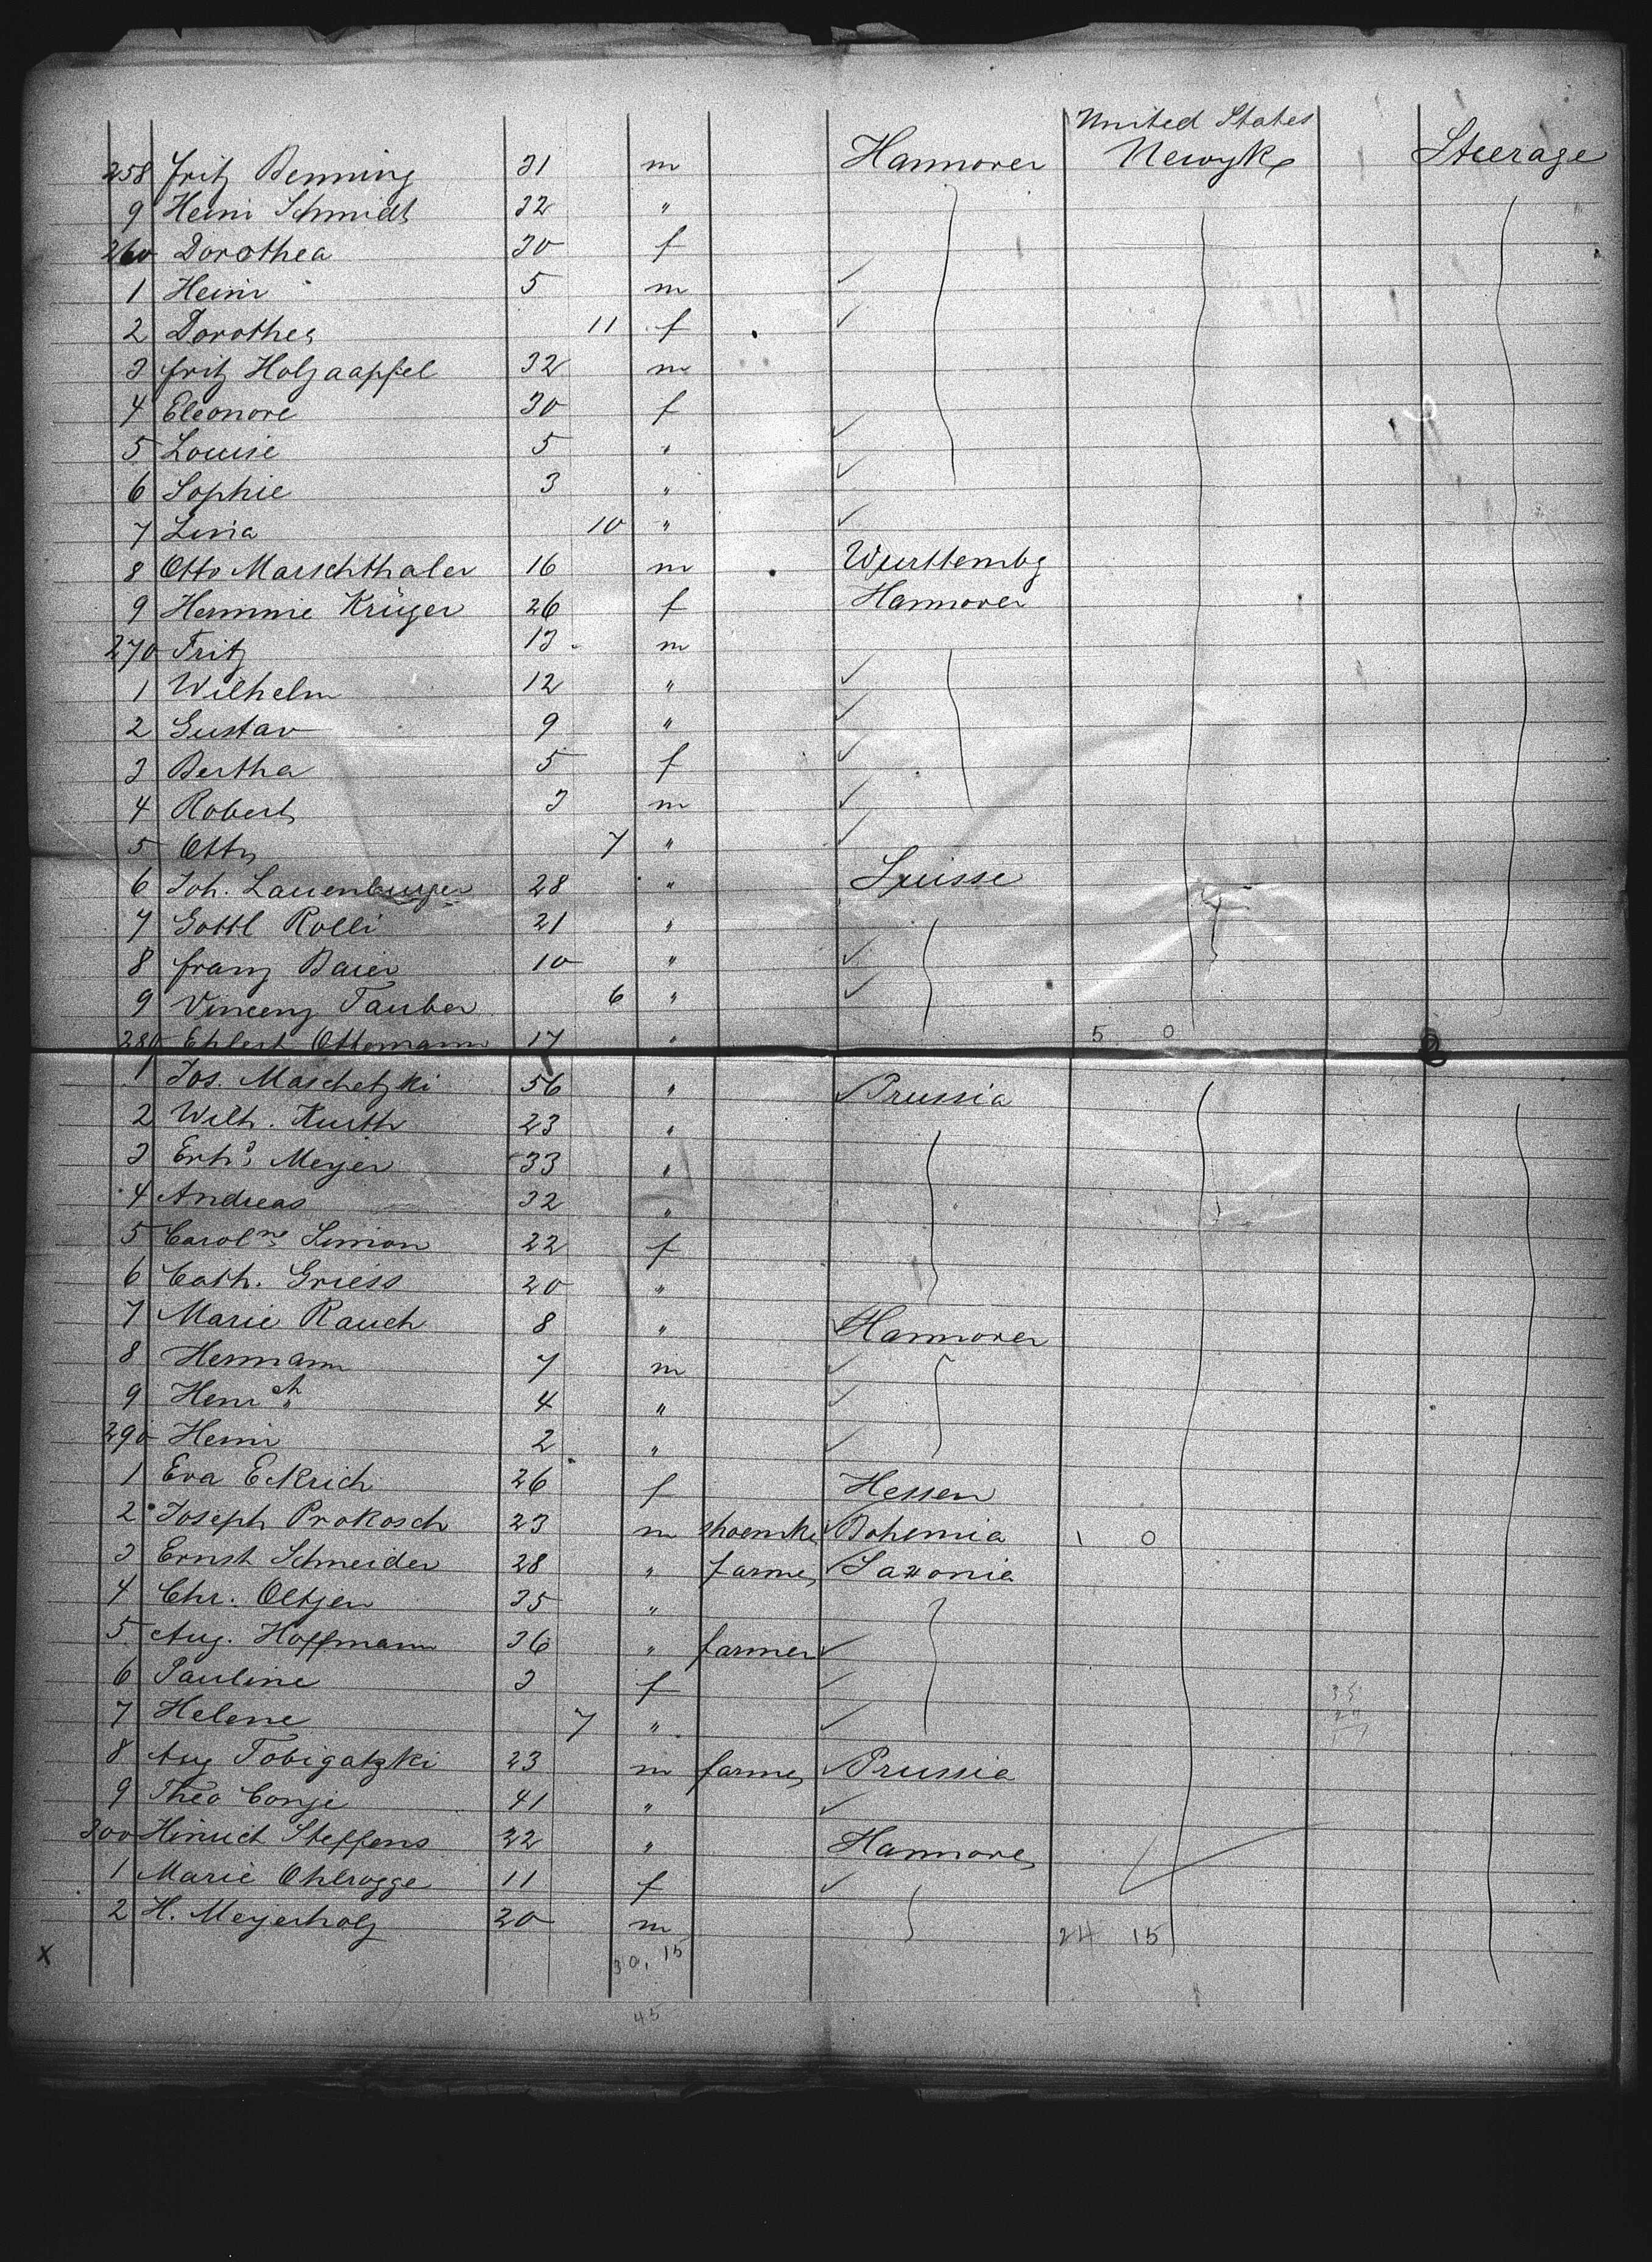 United States
258 Fritz Benning 31 m Hannover Newyk Steerage
9 Heinr Schmidt 32 "
260 Dorothea 30 f
1 Heinr 5 m ✓
2 Dorothea 11 f ✓
3 Fritz Holzaapfel 32 m
4 Eleonore 30 f
5 Louise 5 " ✓
6 Sophie 3 " ✓
7 Lina 10 " ✓
8 Otto Marschthaler 16 m Wurttembg
9 Hermine Krüger 26 f Hannover
270 Fritz 13 m
1 Wilhelm 12 " ✓
2 Gustav 9 " ✓
3 Bertha 5 f ✓
4 Robert 3 m ✓
5 Otto 7 " ✓
6 Joh. Lauenburger 28 " Suisse
7 Gottl Rolli 21 "
8 Franz Baier 10 " ✓
9 Vincenz Tauber 6 " ✓
280 Ehlert Ottomann 17 " 5 0
1 Jos. Maschetzki 56 " ✓ Prussia
2 Wilh. Kurth 23 "
3 Erhd Meyer 33 "
4 Andreas 32 "
5 Carolne Simon 22 f
6 Cath. Griess 20 "
7 Marie Rauch 8 " ✓ Hannover
8 Hermann 7 m ✓
9 Henrch 4 " ✓
290 Heinr 2 " ✓
1 Eva Eckrich 26 f Hessen
2 Joseph Prokosch 23 m shoemkr ✓ Bohemia 1 0
3 Ernst Schneider 28 " farmer ✓ Saxonia
4 Chr. Oltjen 35 "
5 Aug. Hoffmann 36 " farmer ✓
6 Pauline 3 f ✓
7 Helene 7 " ✓
8 Aug Tobigatzki 23 m farmer ✓ Prussia
9 Theo Conje 41 " ✓
300 Hinrich Steffens 22 " Hannover
1 Marie Ohlrogge 11 f ✓
2 H. Meyerholz 20 m 24 15
x 30, 15
45